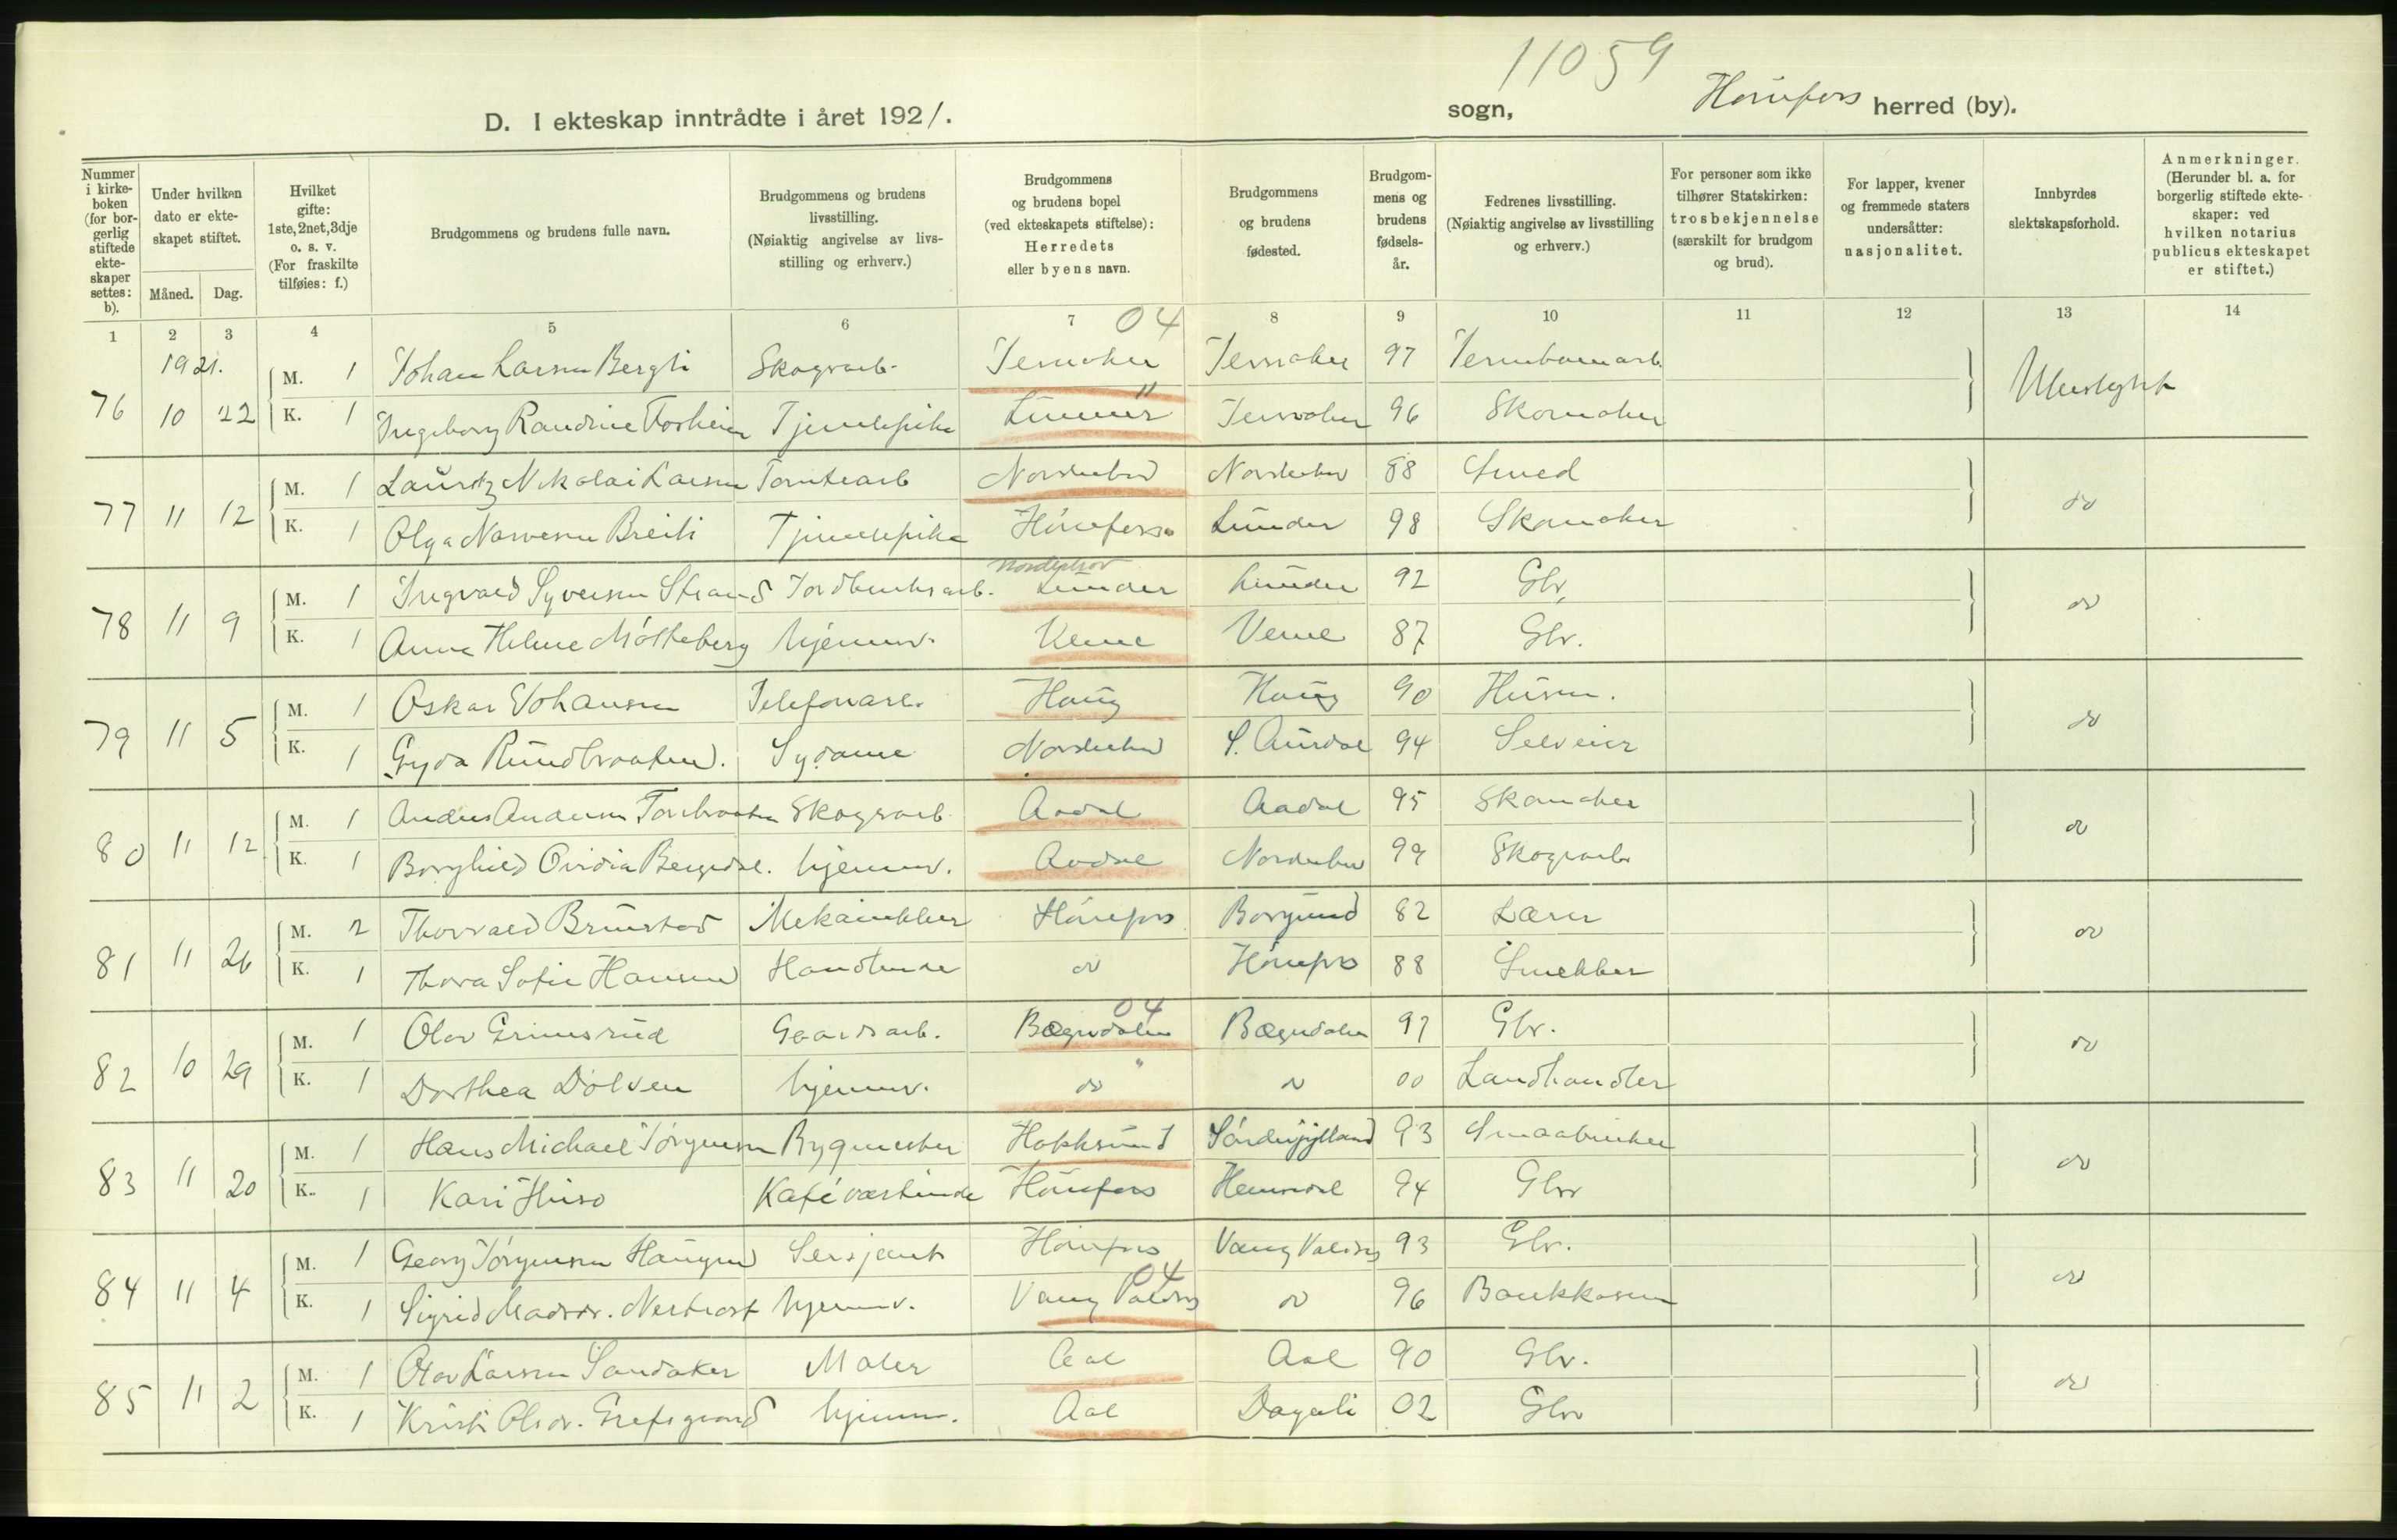 11059
D. I ekteskap inntrådte i året 1921.
sogn, Hönefoss herred (by).
Nummer i kirkeboken (for borgerlig stiftede ekteskaper settes: b).
Under hvilken dato er ekteskapet stiftet.
Måned. Dag.
Hvilket gifte: 1ste, 2net, 3dje o. s. v. (For fraskilte tilføies: f.)
Brudgommens og brudens fulle navn.
Brudgommens og brudens livsstilling. (Nøiaktig angivelse av livsstilling og erhverv.)
Brudgommens og brudens bopel (ved ekteskapets stiftelse): Herredets eller byens navn.
Brudgommens og brudens fødested.
Brudgommens og brudens fødselsår.
Fedrenes livsstilling. (Nøiaktig angivelse av livsstilling og erhverv.)
For personer som ikke tilhører Statskirken: trosbekjennelse (særskilt for brudgom og brud).
For lapper, kvener og fremmede staters undersåtter: nasjonalitet.
Innbyrdes slektskapsforhold.
Anmerkninger. (Herunder bl. a. for borgerlig stiftede ekteskaper: ved hvilken notarius publicus ekteskapet er stiftet.)
1 2 3 4 5 6 7 04 8 9 10 11 12 13 14
1921.
M. 1 Johan Larsen Bergli Skogsarb. Jevnaker Jevnaker 97 Jernbanearb.
76 10 22 K. 1 Ingeborg Randine Tjenestpike Lunner Jevnaker 96 Skomaker Ubeslægtet
M. 1 Lauritz Nikolai Larsen Tomtearb Norderhov Norderhov 88 Smed
77 11 12 K. 1 Olga Narvesen Breili Tjenestpike Hönefoss Lunder 98 Skomaker do
Norderhov
M. 1 Ingvald Syversen Strand Jordbruksarb. Lunder Lunder 92 Gbr.
78 11 9 K. 1 Anna Helene Möltheberg hjemmv. Veme Veme 87 Gbr. do
M. 1 Oskar Johansen Telefonarb. Haug Haug 90 Husm.
79 11 5 K. 1 Gyda Rundbraaten. Sydame Norderhov S. Aurdal 94 Selveier do
M. 1 Anders Andersen Skogsarb Aadal Aadal 95 Skomaker
80 11 12 K. 1 Borghild Ovidia Bergedal. hjemmv. Aadal Norderhov 99 Skogsarb do
M. 2 Thorvald Brunstad Mekaniker Hönefoss Borgund 82 Lærer
81 11 26 K. 1 Thora Sofie Hansen Handlende do Hönefos 88 Snekker do
04
M. 1 Olav Grimsrud Gaardsarb. Bægndalen Bægndalen 97 Gbr.
82 10 29 K. 1 Dorthea Dölven hjemmv. do do 00 Landhandler do
M. 1 Hans Michael Jörgensen Bygmester Hokksund Sönderjylland 93 Smaabruker
83 11 20 K. 1 Kari Huso Kafévertinde Hönefoss Hemsedal 94 Gbr do
M. 1 Georg Jörgensen Haugen Sersjant Hönefoss Vang Valdres 93 Gbr.
04
84 11 4 K. 1 Sigrid Madsdr. Vang Valdres do 96 Bankkasserer do
M. 1 Olav Larsen Sandaker Maler Aal Aal 90 Gbr.
85 11 2 K. 1 Kristi Olsdr. Grefsgaard hjemm. Aal Dagali 02 Gbr do